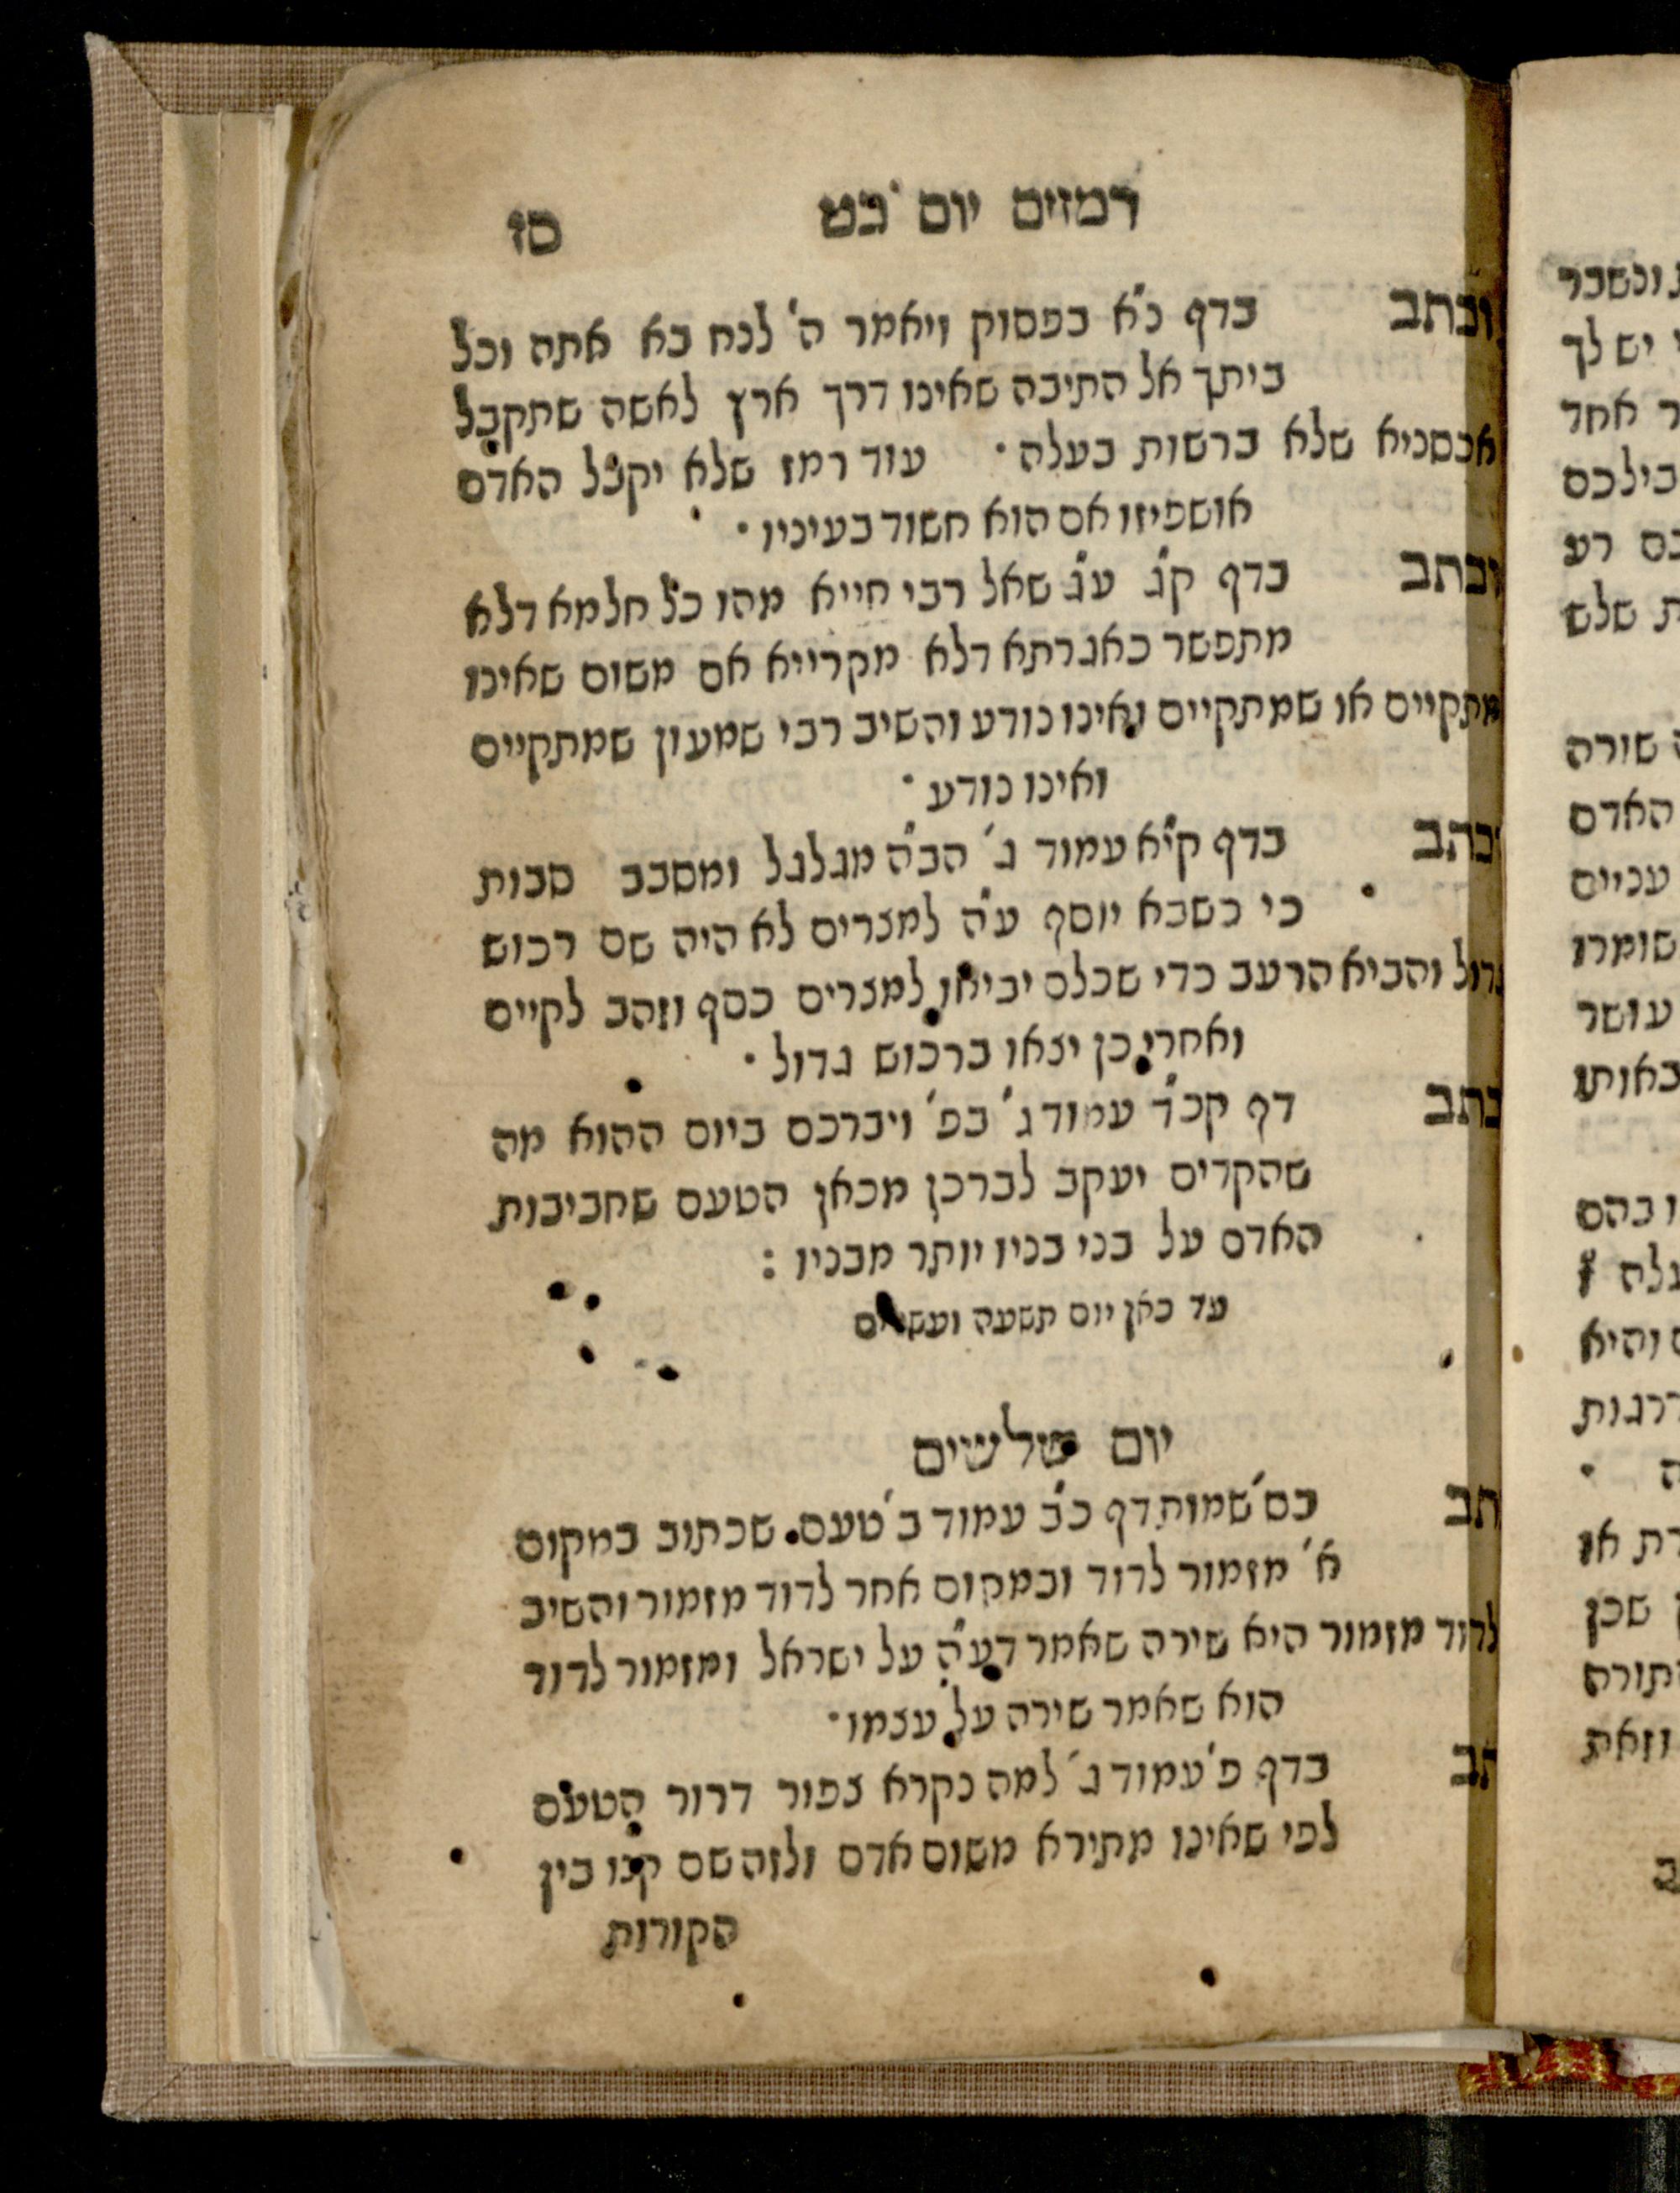 רמזים יום כט סז
וכתב בדף כ"א בפסוק ויאמר ה' לנח בא אתה וכל
ביתך אל התיבה שאינו דרך ארץ לאשה שתקבל
אכסניא שלא ברשות בעלה · עוד רמז שלא יקבל האדם
אושפיזו אם הוא חשוד בעיניו ·
וכתב בדף ק"ג ע"ג שאל רבי חייא מהו כל חלמא דלא
מתפשר כאגרתא דלא מקרייא אם משום שאינו
מתקיים או שמתקיים ואינו נודע והשיב רבי שמעון שמתקיים
ואינו נודע ·
וכתב בדף קי"א עמוד ג' הב"ה מגלגל ומסבב סבות
כי כשבא יוסף ע"ה למצרים לא היה שם רכוש
גדול והביא הרעב כדי שכלם יביאו למצרים כסף וזהב לקיים
ואחרי כן יצאו ברכוש גדול ·
כתב דף קכ"ד עמוד ג' בפ' ויברכם ביום ההוא מה
שהקדים יעקב לברכן מכאן הטעם שחביבות
האדם על בני בניו יותר מבניו :
עד כאן יום תשעה ועשרים
יום שלשים
תב בס' שמות דף כ"ב עמוד ב' טעם שכתוב במקום
א' מזמור לדוד ובמקום אחר לדוד מזמור והשיב
לדוד מזמור היא שירה שאמר דע"ה על ישראל ומזמור לדוד
הוא שאמר שירה על עצמו ·
תב בדף פ' עמוד ג' למה נקרא צפור דרור הטעם
לפי שאינו מתירא משום אדם ולזה שם קנו בין
הקורות
ונשבר
יש לך
ר אחד
בילכם
כם רע
ת שלש
שורה
האדם
עניים
שומרו
עושר
באותו
ו בהם
והיא
דרגות
רת או
שכן
תורה
וזאת